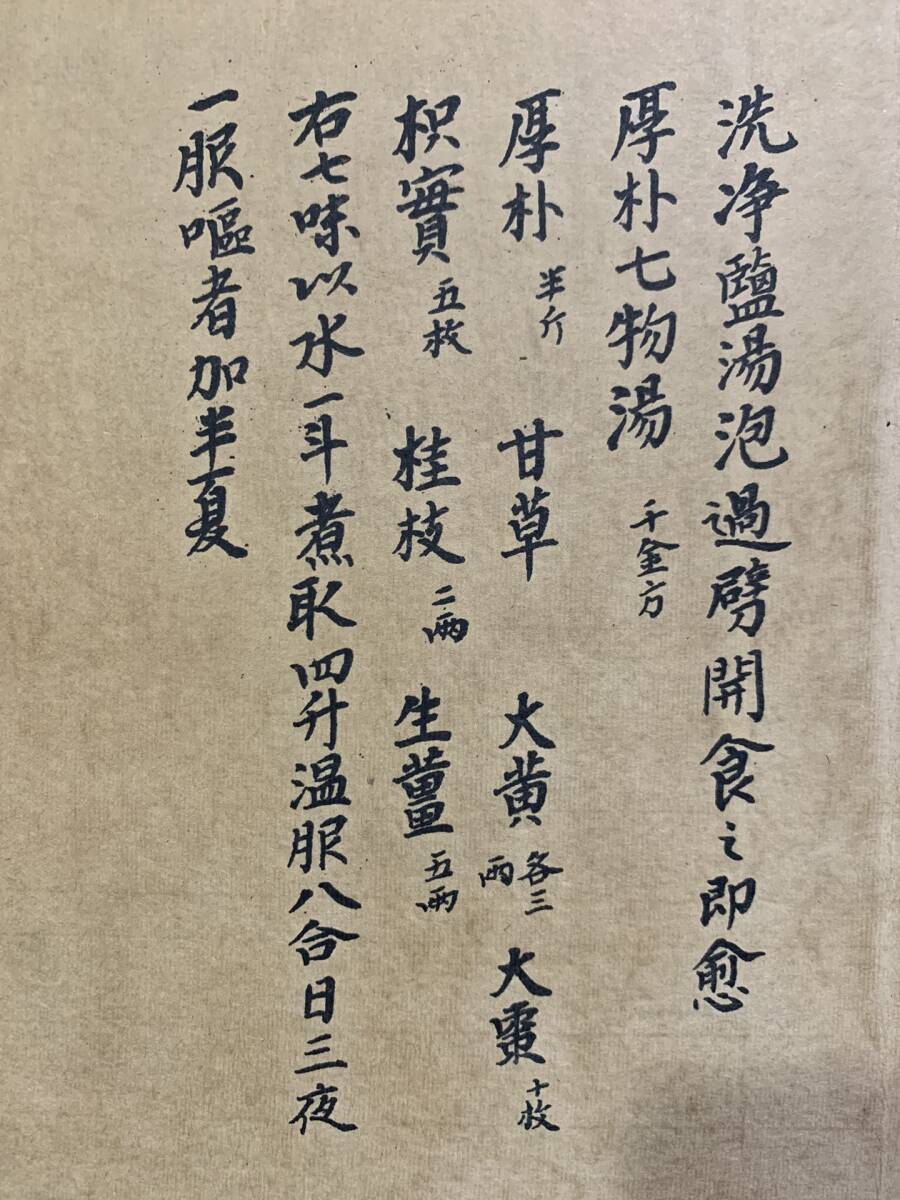 洗净鹽湯泡過劈開食之即愈
厚朴七物湯 千金方
厚朴 半斤 甘草 大黄 各三兩 大棗 十枚
枳實 五枚 桂枝 二兩 生薑 五兩
右七味以水一斗煮取四升温服八合日三夜
一服嘔者加半夏